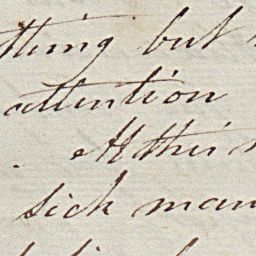 thing but
attention
At this
sick man